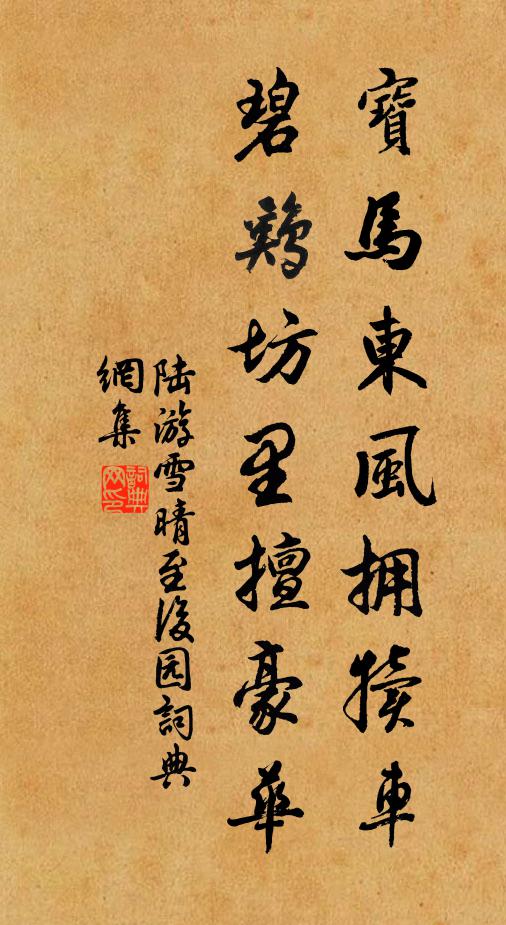 寶馬東風拥犊車
碧鷄坊里擅豪華
陆游雪晴至後园詞典
網集
詞典
网印